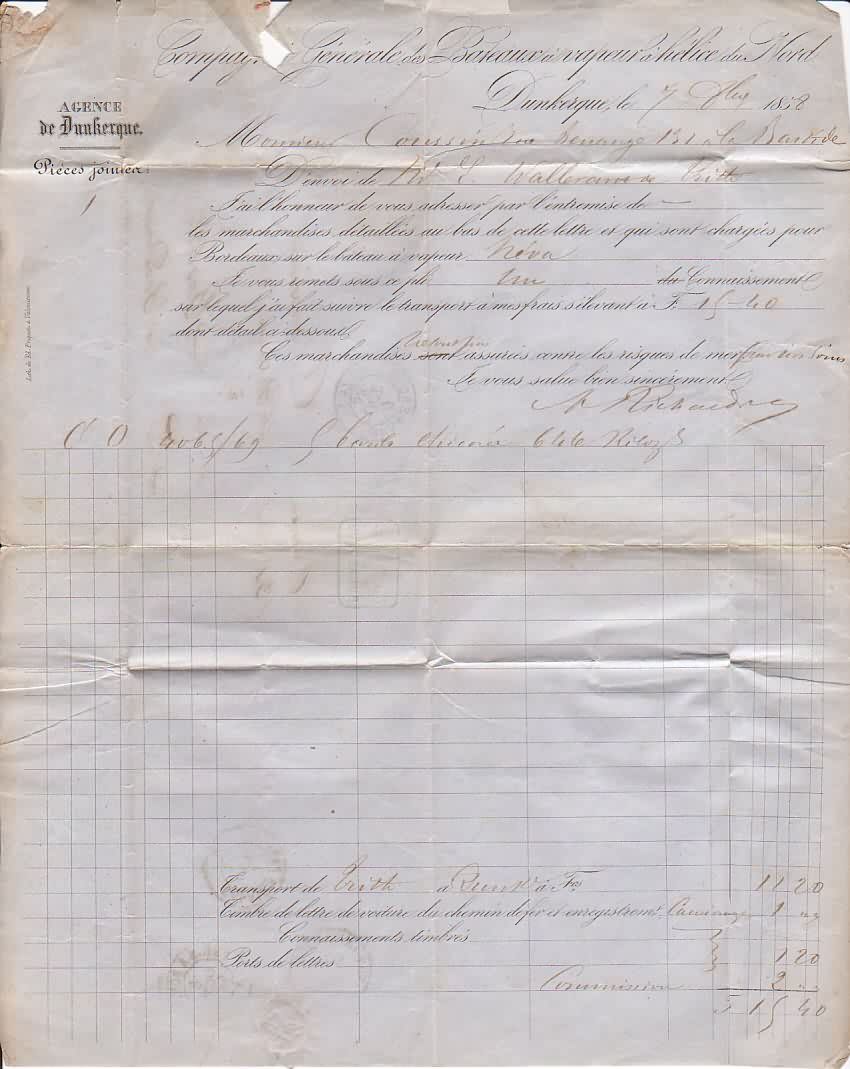 Compagnie Générale des Bateaux à vapeur à hélice du Nord
Dunkerque, le 7 1858
AGENCE
de Dunkerque.
Pièces jointes:
1
Monsieur
D'envoi de Mr
J'ai l'honneur de vous adresser par l'entremise de —
les marchandises détaillées au bas de cette lettre et qui sont chargées pour
Bordeaux sur le bateau à vapeur Néva
Je vous remets sous ce pli Un du Connaissement
sur lequel j'ai fait suivre le transport à mes frais s'élevant à F. 15-40
dont détail ci-dessous
Ces marchandises sont assurées contre les risques de mer
Je vous salue bien sincèrement
C O 4065/69 5 Kilos
Transport de Trith à Dunkr à Fcs 11 20
Timbre de lettre de voiture du chemin de fer et enregistremt 1 "
Connaissements timbrés
Ports de lettres 1 20
Commission 2 "
F 15 40